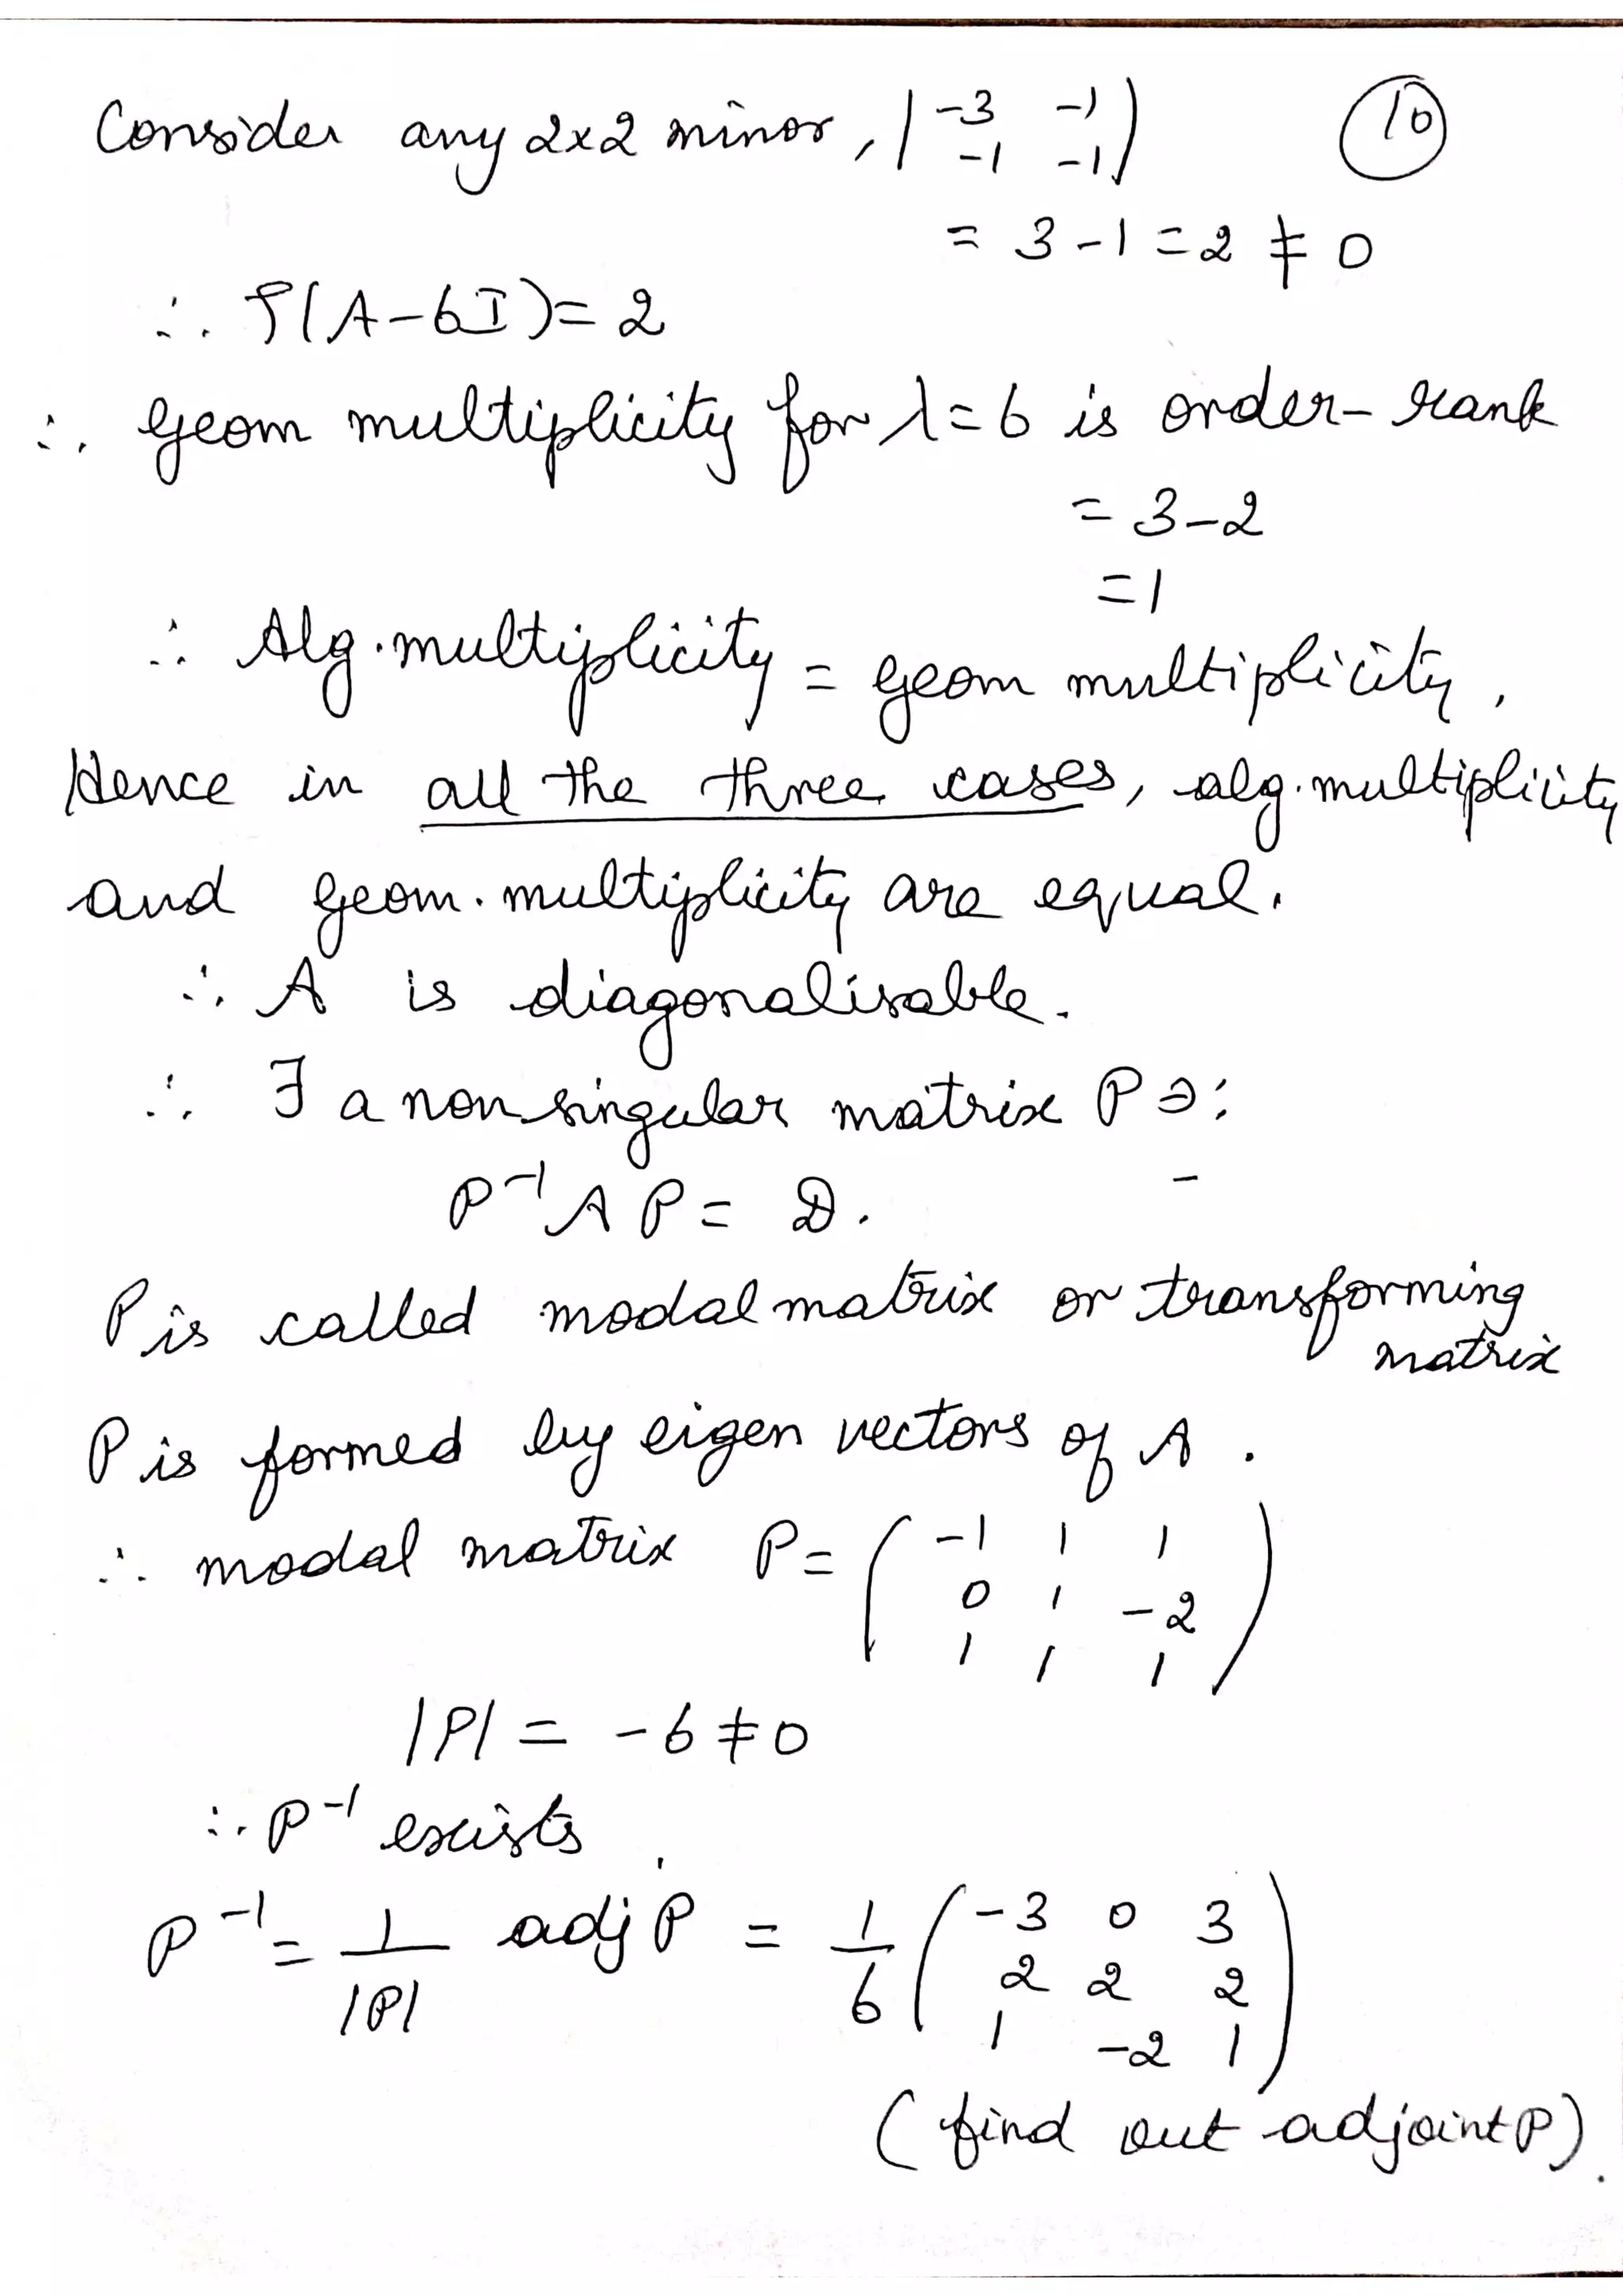 Consider any 2x2 minor, | -3 -1 |
| -1 -1 |
10
= 3 - 1 = 2 ≠ 0
∴ ρ(A-6I) = 2
∴ geom multiplicity for λ=6 is order-rank
= 3-2
= 1
∴ Alg. multiplicity = geom multiplicity.
Hence in all the three cases, alg. multiplicity
and geom. multiplicity are equal.
∴ A is diagonalisable.
∴ ∃ a non singular matrix P ∋:
P⁻¹AP = D.
P is called modal matrix or transforming
matrix
P is formed by eigen vectors of A.
∴ modal matrix P = ( -1 1 1
0 1 -2
1 1 1 )
|P| = -6 ≠ 0
∴ P⁻¹ exists.
P⁻¹ = 1/|P| adj P = 1/6 ( -3 0 3
2 2 2
1 -2 1 )
(find out adjoint P).